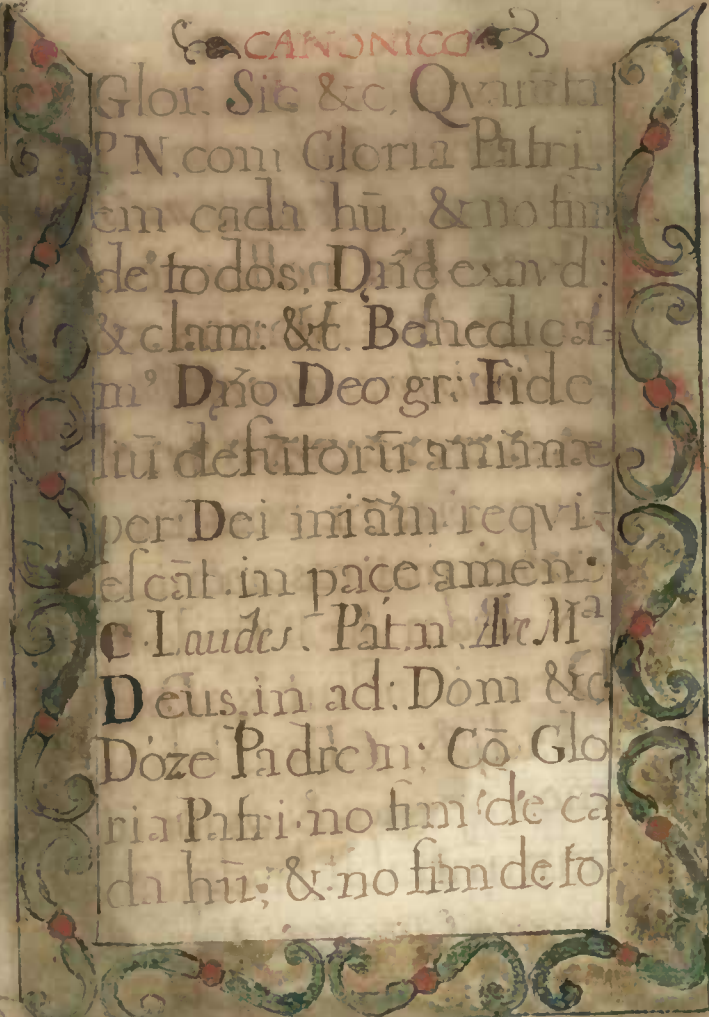 CANONICO
Glor. Sic &c. Qvarẽta
P N. com Gloria Patri
em cada hũ, & no fim
de todos. Dñe exavd:
& clam: &c. Benedica-
m' Dño Deo gr: Fide
liũ defũtorũ animæ
per Dei miãm reqvi-
escãt in pace amen:
C. Laudes. Pat.n. Ave Mª
Deus in ad: Dom &c
Doze Padre n: Cõ Glo
ria Patri no fim de ca
da hũ; & no fim de to